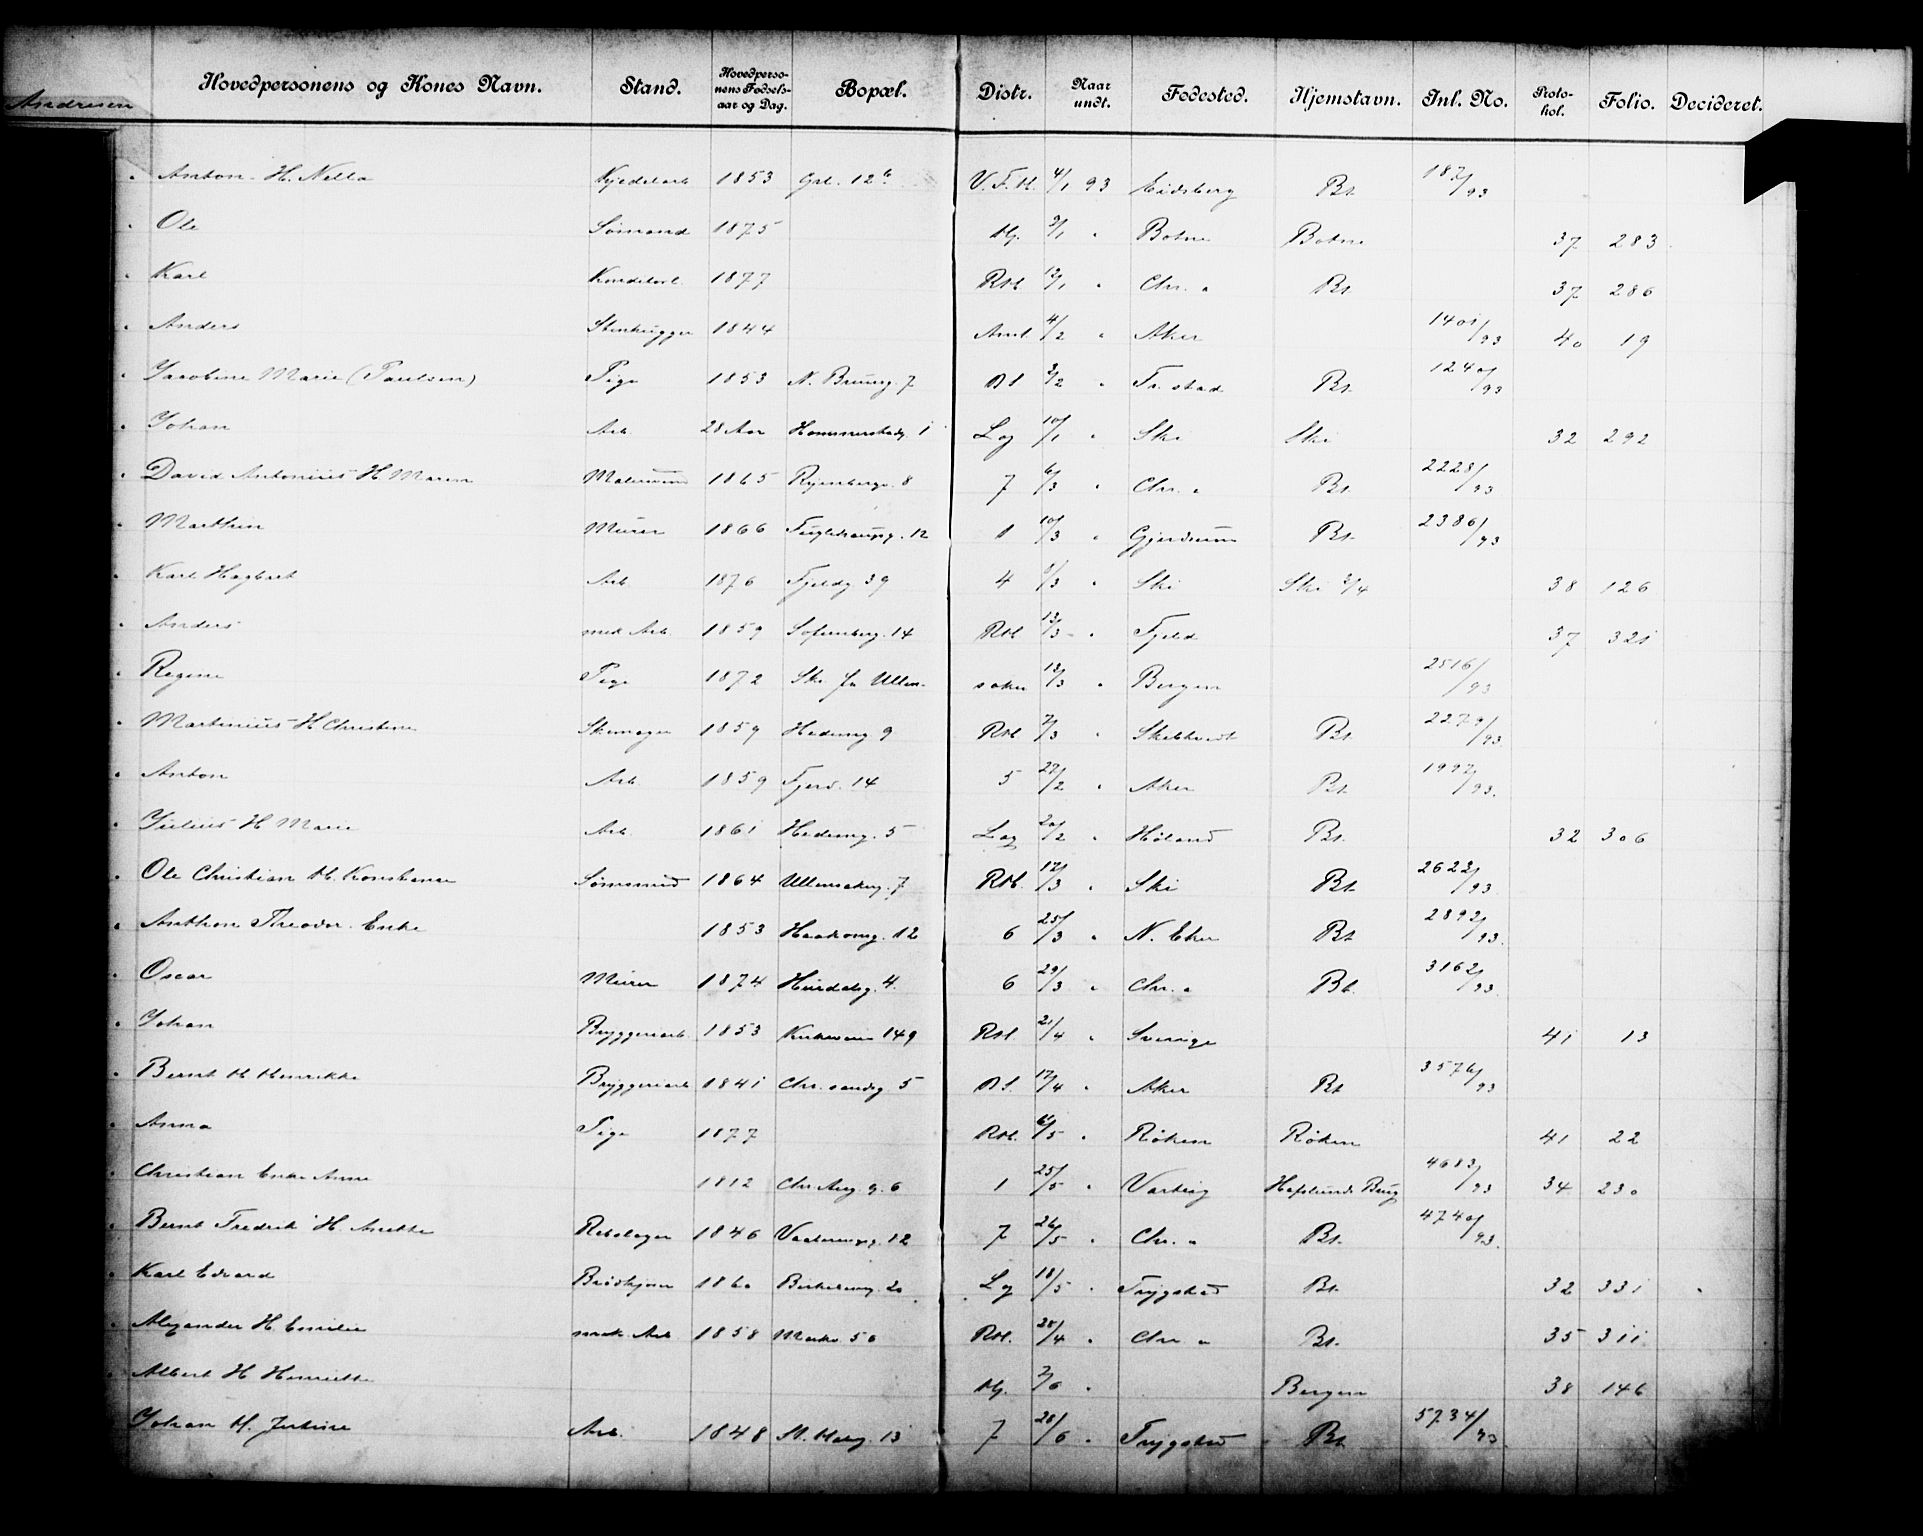 Andresen
Hovedpersonens og Kones Navn. Stand. Hovedpersonens Fødselsaar og Dag. Bopæl. Distr. Naar undt. Fødested. Hjemstavn. Inl. No. Protokol. Folio. Decideret.
Anton H. Nella Kjedelarb 1853 Grl. 12 b V.F.H. 4/1 93 Eidsberg Bt 187/93
Ole Sømand 1875 Hj. 9/1 " Botne Botne 37 283
Karl Konditorl. 1877 RM 12/1 " Chr. a Bt. 37 286
Anders Stenhugger 1844 Aml 4/2 " Aker 1401/93 40 19
Jacobine Marie (Paulsen) Pige 1853 N. Brung. 7 3/2 " Fr. stad Bt 1240/93
Johan Arb. 28 Aar Hammerstadg. 1 Log 10/1 " Ski Ski 32 292
David Antonius H Maren Malersvend 1865 Ryenberg. 8 7 6/3 " Chr. a Bt. 2228/93
Marthin Murer 1866 Fuglehaugg. 12 1 10/3 " Gjerdrum Bt. 2386/93
Karl Hagbart Arb 1876 Fjeldg 39 4 9/3 " Ski Ski 2/4 38 126
Anders mek Arb. 1859 Sofienberg. 14 RM 13/3 " Fjeld 37 321
Regine Pige 1872 Skr. fra Ullensaker 13/3 " Bergen 2516/93
Martinius H Christine Skomager 1859 Hedmg 9 RM 7/3 " Skibtvedt Bt 2279/93
Anton Arb. 1859 Fjerd. 14 5 27/2 " Aker Bt. 1997/93.
Julius H Marie Arb. 1861 Hedmg. 5 Log 20/2 " Høland Bt. 32 306
Ole Christian H. Konstanse Sømsmed 1864 Ullensakerg. 7 RM. 17/3 " Ski Bt. 2622/93.
Anthon Theodor. Enke 1853 Haakonsg. 12 6 25/3 " N. Eker Bt 2892/93.
Oscar Murer 1874 Hurdalsg. 4. 6 29/3 " Chr. a Bt. 3162/93.
Johan Bryggeriarb. 1853 Kirkeveien 149 RM. 21/4 " Sverige 41 13
Bernt H Henrikke Bryggeriarb 1841 Chr. sandsg 5 17/4 " Aker Bt 3576/93
Anna Pige 1877 RM. 6/5 " Røken Røken 41 22
Christian Enke Anne 1812 Chr. Aug. g. 6 1 25/5 " Varteig Hafslunds Brug 4683/93 34 230
Bernt Fredrik H. Anette Rebslager 1846 Vaalerengg. 12 7 26/5 " Chr. a Bt. 4740/93.
Karl Edvard Brødkjører 1860 Birkelung. 20 Log 18/5 " Trygstad Bt. 32 331
Alexander H. Emilie mek. Arb 1858 Markv. 50 RM. 28/4 " Chr a Bt. 35 311
Albert H Henriette Hj. 7/6 " Bergen 38 146
Johan H. Jertine Arb. 1848 St. Halg. 13 7 28/6 " Trygstad Bt 5734/93